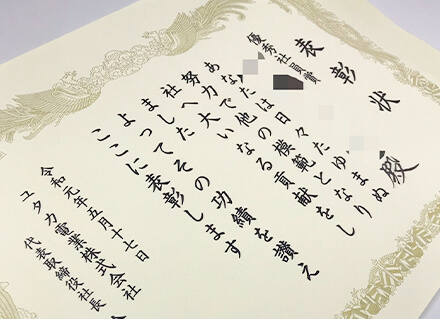 表彰状
優秀社員賞
殿
あなたは日々たゆまぬ
努力で他の模範となり
社へ大いなる貢献をし
ました
よってその功績を讃え
ここに表彰します
令和元年五月十七日
ユタカ電業株式会社
代表取締役社長